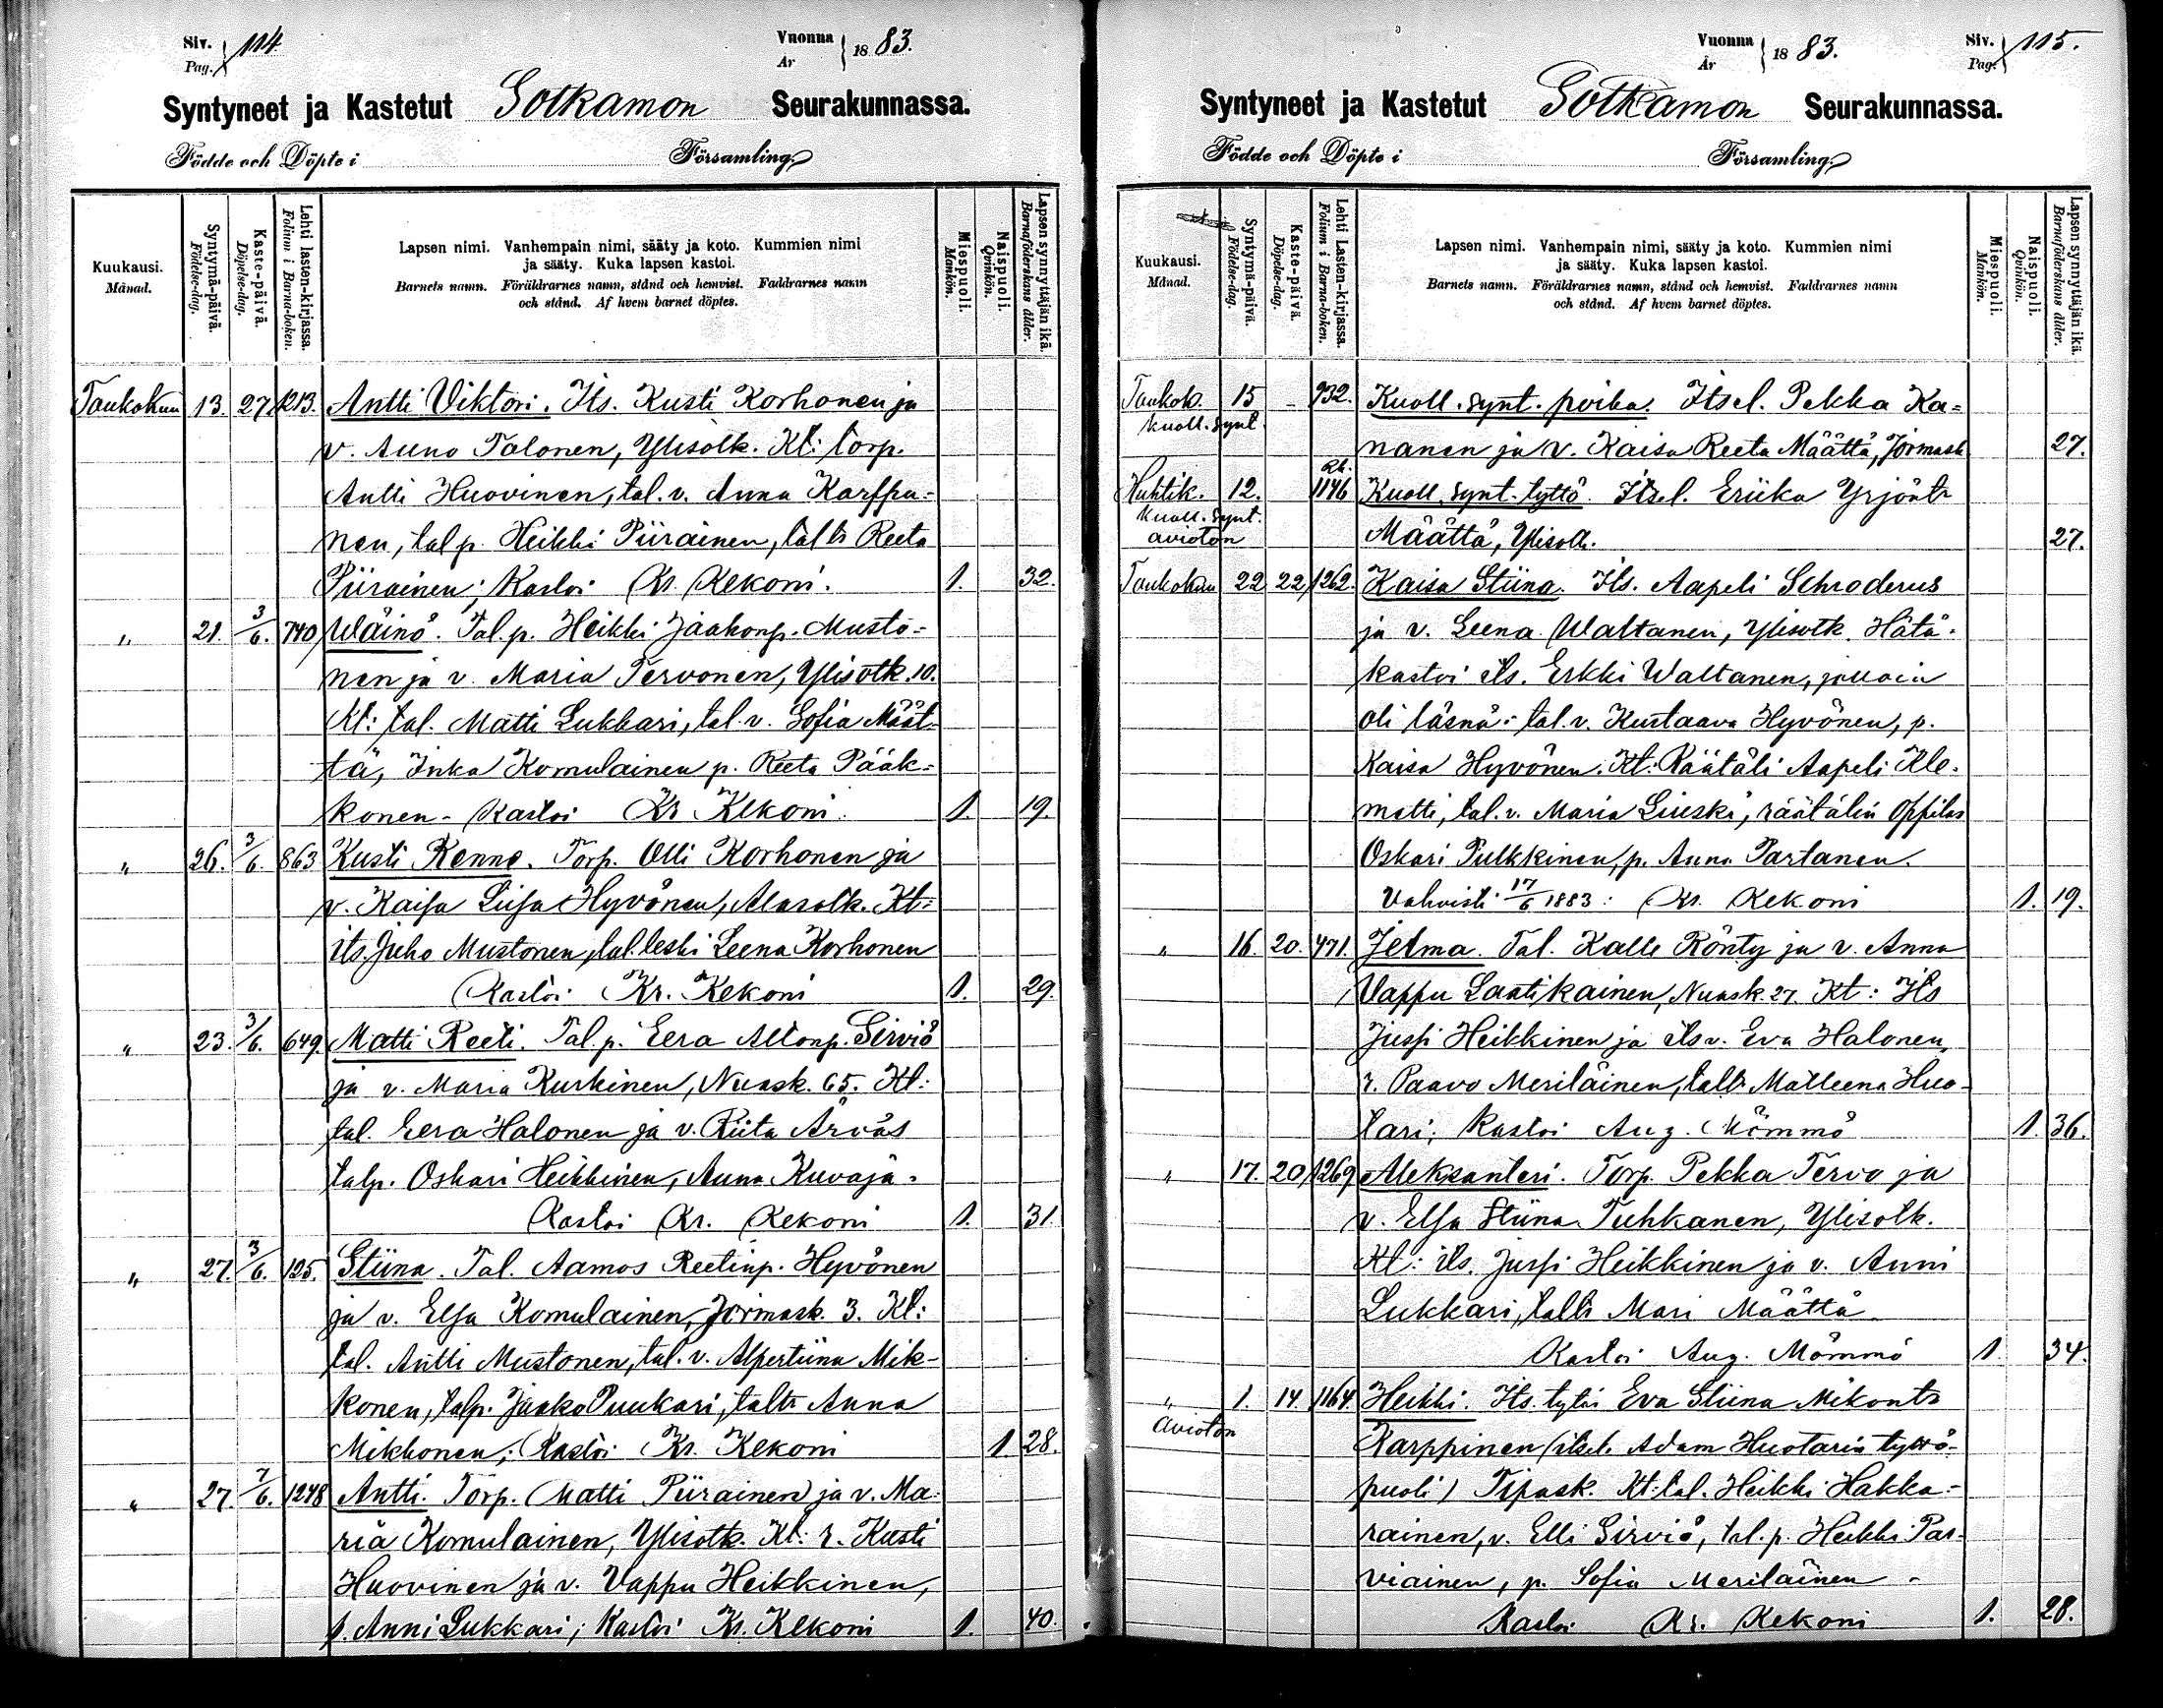 Siv. Pag. 114
Vuonna År 1883.
Syntyneet ja Kastetut Sotkamon Seurakunnassa.
Födde och Döpte i Församling.
Kuukausi. Månad.
Syntymä-päivä. Födelse-dag.
Kaste-päivä. Döpelse-dag.
Lehti lasten-kirjassa. Folium i Barna-boken.
Lapsen nimi. Vanhempain nimi, sääty ja koto. Kummien nimi
ja sääty. Kuka lapsen kastoi.
Barnets namn. Föräldrarnes namn, stånd och hemvist. Faddrarnes namn
och stånd. Af hvem barnet döptes.
Miespuoli. Mankön.
Naispuoli. Qvinkön.
Lapsen synnyttäjän ikä. Barnaföderskans ålder.
Toukokuu 13. 27. 1213. Antti Viktori. Its. Kusti Korhonen ja
v. Auno Talonen, Ylisotk. Kt: torp.
Antti Huovinen, tal. v. Anna Karppi-
nen, tal p. Heikki Piirainen, talt: Reeta
Piirainen; Kastoi Kr. Kekoni. 1. 32.
" 21. 3/6. 740 Wäinö. Tal. p. Heikki Jaakonp. Musto-
nen ja v. Maria Tervonen, Ylisotk. 10.
Kt: tal. Matti Lukkari, tal. v. Sofia Määt-
tä, Inka Komulainen p. Reeta Pääk-
konen - Kastoi Kr Kekoni. 1. 19.
" 26. 3/6. 863 Kusti Renne. Torp. Olli Korhonen ja
v. Kaisa Liisa Hyvönen, Alasotk. Kt:
its. Juho Mustonen, tal. leski Leena Korhonen
Kastoi Kr. Kekoni 1. 29.
" 23. 3/6. 649. Matti Reeti. Tal. p. Eera Allonp. Sirviö
ja v. Maria Kurkinen, Nuask. 65. Kt:
tal. Eera Halonen ja v. Riita Ärväs
talp. Oskari Heikkinen, Anna Kuvaja.
Kastoi Kr. Kekoni 1. 31.
" 27. 3/6. 125. Stiina. Tal. Aamos Reetinp. Hyvönen
ja v. Elsa Komulainen, Jormask. 3. Kt:
tal. Antti Mustonen, tal. v. Alpertiina Mik-
konen, talp. Jaako Puukari, talt: Anna
Mikkonen; Kastoi Kr. Kekoni 1. 28.
" 27. 7/6. 1248 Antti. Torp. Matti Piirainen ja v. Ma-
ria Komulainen, Ylisotk. Kt: r. Kusti
Huovinen ja v. Vappu Heikkinen,
p. Anni Lukkari; Kastoi Kr. Kekoni 1. 40.
Vuonna År 1883.
Siv. Pag. 115.
Syntyneet ja Kastetut Sotkamon Seurakunnassa.
Födde och Döpte i Församling.
Kuukausi. Månad.
Syntymä-päivä. Födelse-dag.
Kaste-päivä. Döpelse-dag.
Lehti Lasten-kirjassa. Folium i Barna-boken.
Lapsen nimi. Vanhempain nimi, sääty ja koto. Kummien nimi
ja sääty. Kuka lapsen kastoi.
Barnets namn. Föräldrarnes namn, stånd och hemvist. Faddrarnes namn
och stånd. Af hvem barnet döptes.
Miespuoli. Mankön.
Naispuoli. Qvinkön.
Lapsen synnyttäjän ikä. Barnaföderskans ålder.
Toukok. 15 - 932. Kuoll. synt. poika. Itsel. Pekka Ka-
kuoll. synt. nanen ja v. Kaisa Reeta Määttä, Jormask 27.
Huhtik. 12. Rk. 1146 Kuoll. synt. tyttö. Itsel. Eriika Yrjönt:
kuoll. synt.
avioton Määttä, Ylisotk. 27.
Toukokuu 22 22 1262. Kaisa Stiina. Its. Aapeli Schroderus
ja v. Leena Waltanen, Ylisotk. Hätä-
kastoi its. Erkki Waltanen, jolloin
oli läsnä: tal. v. Kustaava Hyvönen, p.
Kaisa Hyvönen. Kt: Räätäli Aapeli Kle-
metti, tal. v. Maria Lieska, räätälin oppilas
Oskari Pulkkinen, p. Anna Partanen.
Vahvisti 17/6 1883: Kr. Kekoni 1. 19.
" 16. 20. 471. Jelma. Tal. Kalle Rönty ja v. Anna
Vappu Laatikainen, Nuask. 27. Kt: Its
Jussi Heikkinen ja its v. Eva Halonen,
r. Paavo Meriläinen, talt: Matleena Huo-
tari; Kastoi Aug. Mömmö 1. 36.
" 17. 20 1269 Aleksanteri. Torp. Pekka Tervo ja
v. Elsa Stiina Tuhkanen, Ylisotk.
Kt: its. Jussi Heikkinen ja v. Anni
Lukkari, talt: Mari Määttä
Kastoi Aug. Mömmö 1 34.
" 1. 14 1164. Heikki. Its. tytär Eva Stiina Mikont:
avioton Karppinen (itsel. Adam Huotarin tytär-
puoli) Tipask. Kt: tal. Heikki Hakka-
rainen, v. Elli Sirviö, tal. p. Heikki Par-
viainen, p. Sofia Meriläinen -
Kastoi Kr. Kekoni 1. 28.